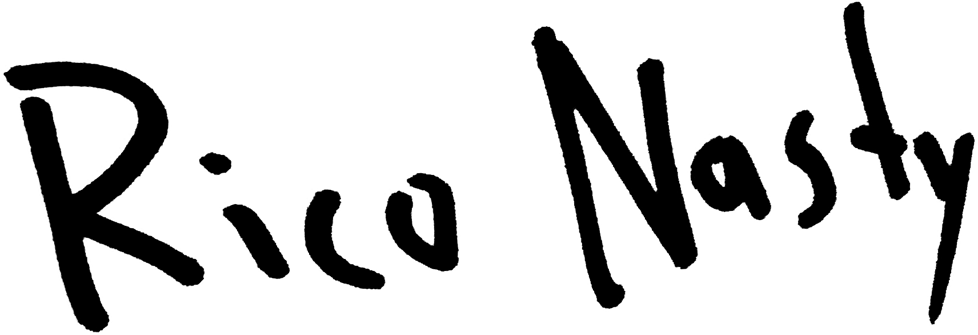 Rico Nasty